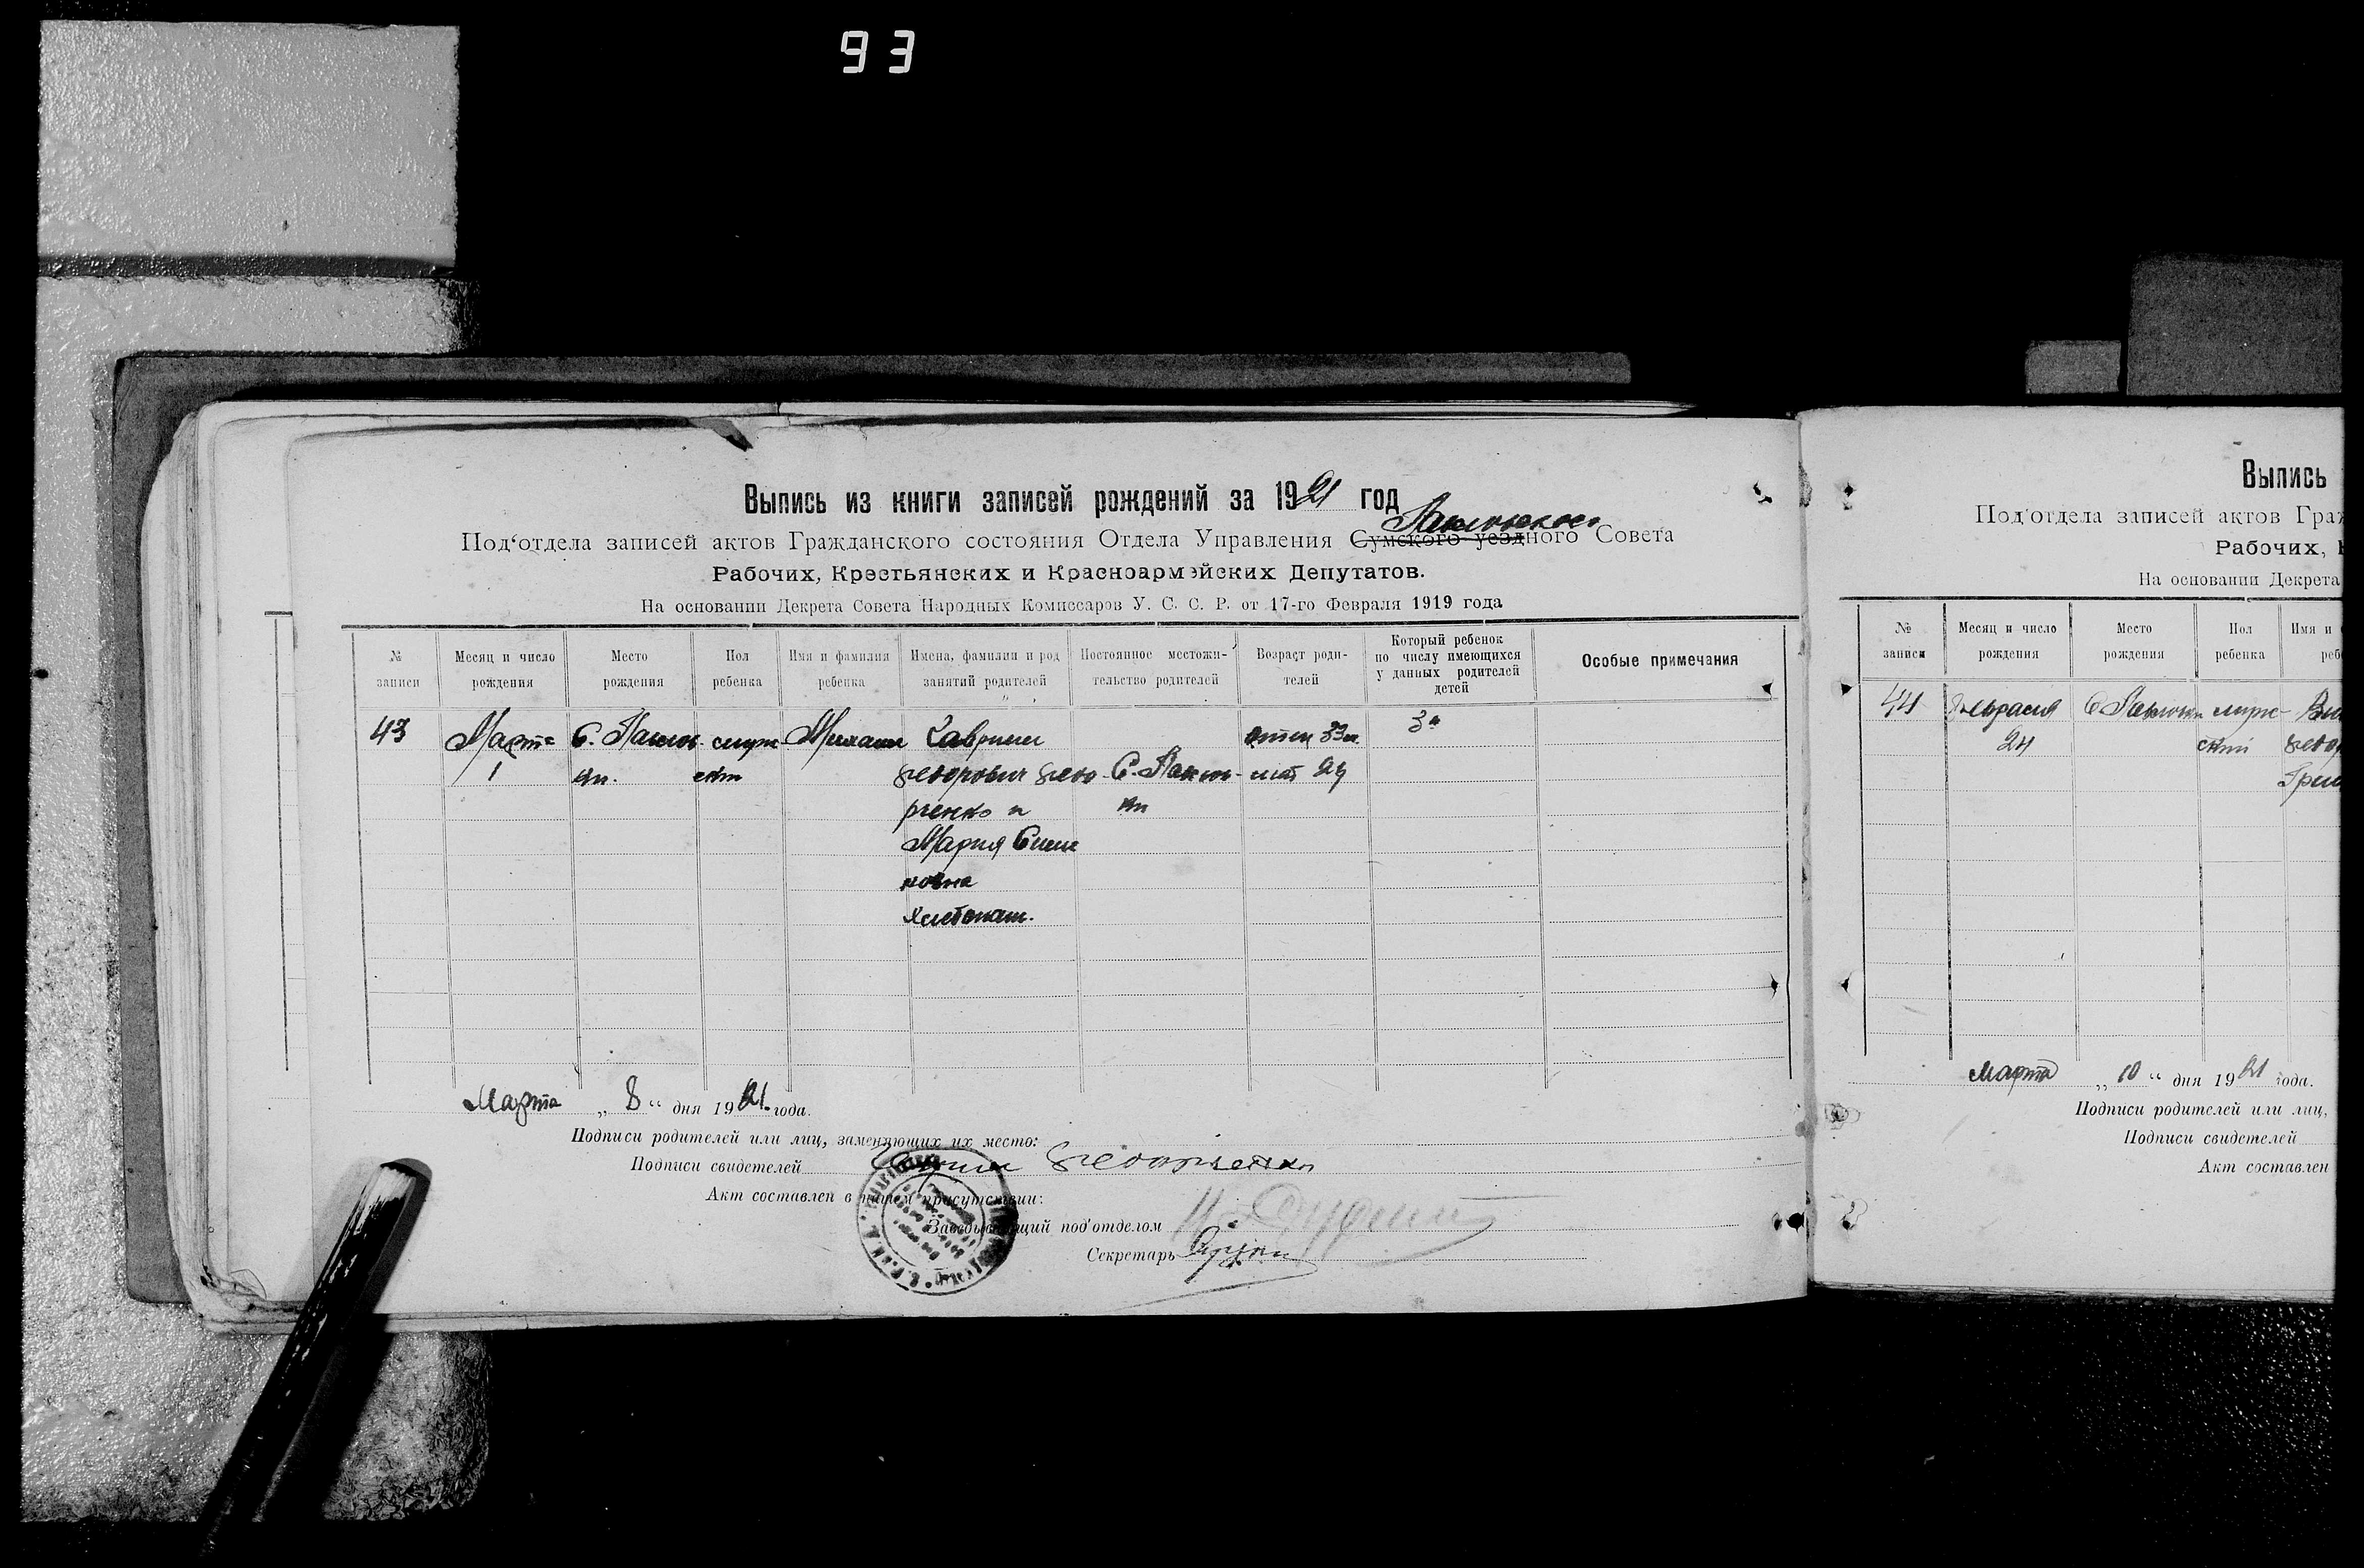 93
Выпись из книги записей рождений за 1921 год
Под‘отдела записей актов Гражданского состояния Отдела Управления Сумского уездного Совета
Рабочих, Крестьянских и Красноармейских Депутатов.
На основании Декрета Совета Народных Комиссаров У. С. С. Р. от 17-го Февраля 1919 года
№ записи
Месяц и число рождения
Место рождения
Пол ребенка
Имя и фамилия ребенка
Имена, фамилии и род занятий родителей
Постоянное местожи-тельство родителей
Возраст роди-телей
Который ребенок по числу имеющихся у данных родителей детей
Особые примечания
43
Марта
1
С.
муж
ской
Михаил
Гавриил
Федорович Федо
рченко и
Мария
новна
хлебопаш.
С.
отец 33 л.
мат 29
3й
Марта „ 8 “ дня 1921 года.
Подписи родителей или лиц, заменяющих их место:
Подписи свидетелей Гавриил Федорченко
Акт составлен в нашем присутствии:
Заведывающий под‘отделом
Секретарь
Выпись
Под‘отдела записей актов Граж
Рабочих,
На основании Декрета
№ записи
Месяц и число рождения
Место рождения
Пол ребенка
Имя и
44
Февраля
24
С.
муж
ской
Федор
Марта „ 10 “ дня 1921 года.
Подписи родителей или лиц,
Подписи свидетелей
Акт составлен